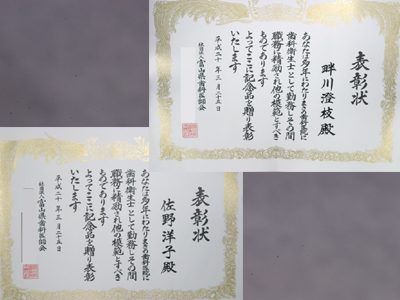 表彰状
畔川澄枝殿
あなたは多年にわたりまるの歯科医院に
歯科衛生士として勤務しその間
職務に精励され他の模範とすべき
ものであります
よってここに記念品を贈り表彰
いたします
平成二十年三月二十五日
社団法人富山県歯科医師会
表彰状
佐野洋子殿
あなたは多年にわたりまるの歯科医院に
歯科衛生士として勤務しその間
職務に精励され他の模範とすべき
ものであります
よってここに記念品を贈り表彰
いたします
平成二十年三月二十五日
社団法人富山県歯科医師会